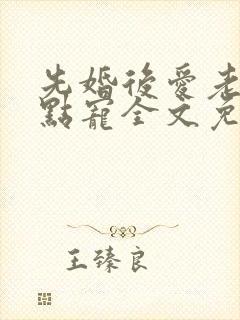 先婚後愛老
點寵全文免
王臻良